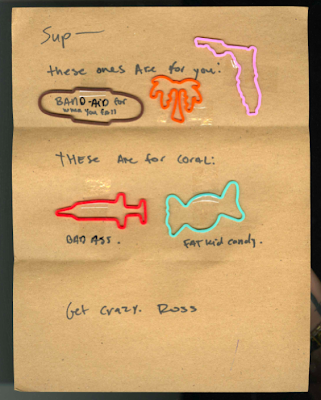 Sup—
these ones Are for you:
BAND-AID for
when you fall
THese Are for coral:
BAD ASS.
FAT Kid candy.
Get crazy. Ross